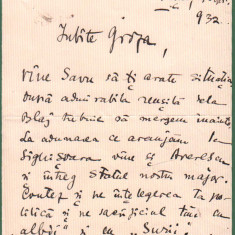 932.
Iubite Groza,
vine Savu să-ți arate situația
După admirabila reușită dela
Blaj trebuie să mergem înainte.
La adunarea ce aranjăm la
Sighișoara vine și Averescu
și întreg statul nostru major.
Contez și pe înțelegerea ta po-
litică și pe sacrificiul tău cu
și cu "